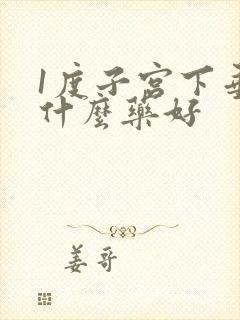 1度子宫下垂
什麼藥好
姜哥